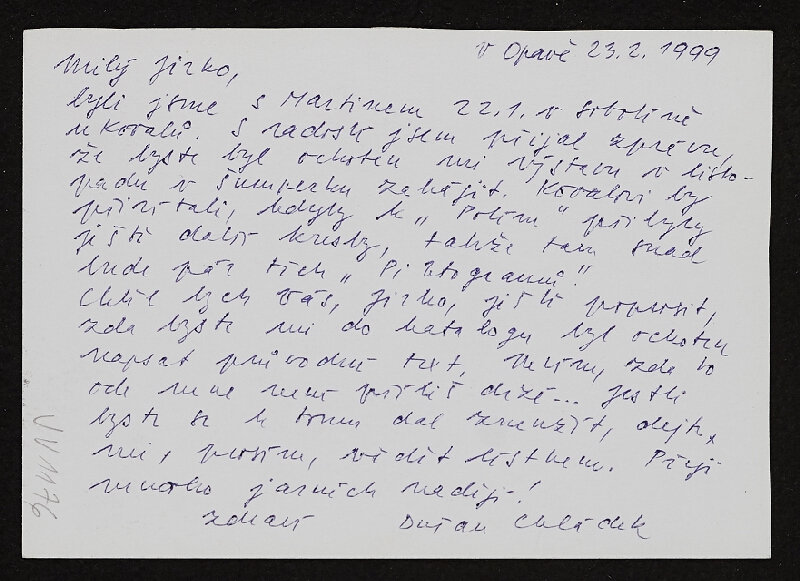 v Opavě 23.2.1999
Milý Jirko,
byli jsme s Martinem 22.1. v Sobotíně
u Kovalů. S radostí jsem přijal zprávu,
že byste byl ochoten mi výstavu v listo-
padu v Šumperku zahájit. Kovalovi by
přivítali, kdyby k „Polím" přibyly
ještě další kresby, takže tam snad
bude pár těch „Piktogramů".
Chtěl bych Vás, Jirko, ještě poprosit,
zda byste mi do katalogu byl ochoten
napsat průvodní text, nevím, zda to
ode mne není příliš drzé... jestli
byste se k tomu dal zmužit, dejte
mi, prosím, vědět lístkem. Přeji
mnoho jarních nadějí!
zdraví Dušan Chládek
VV1176